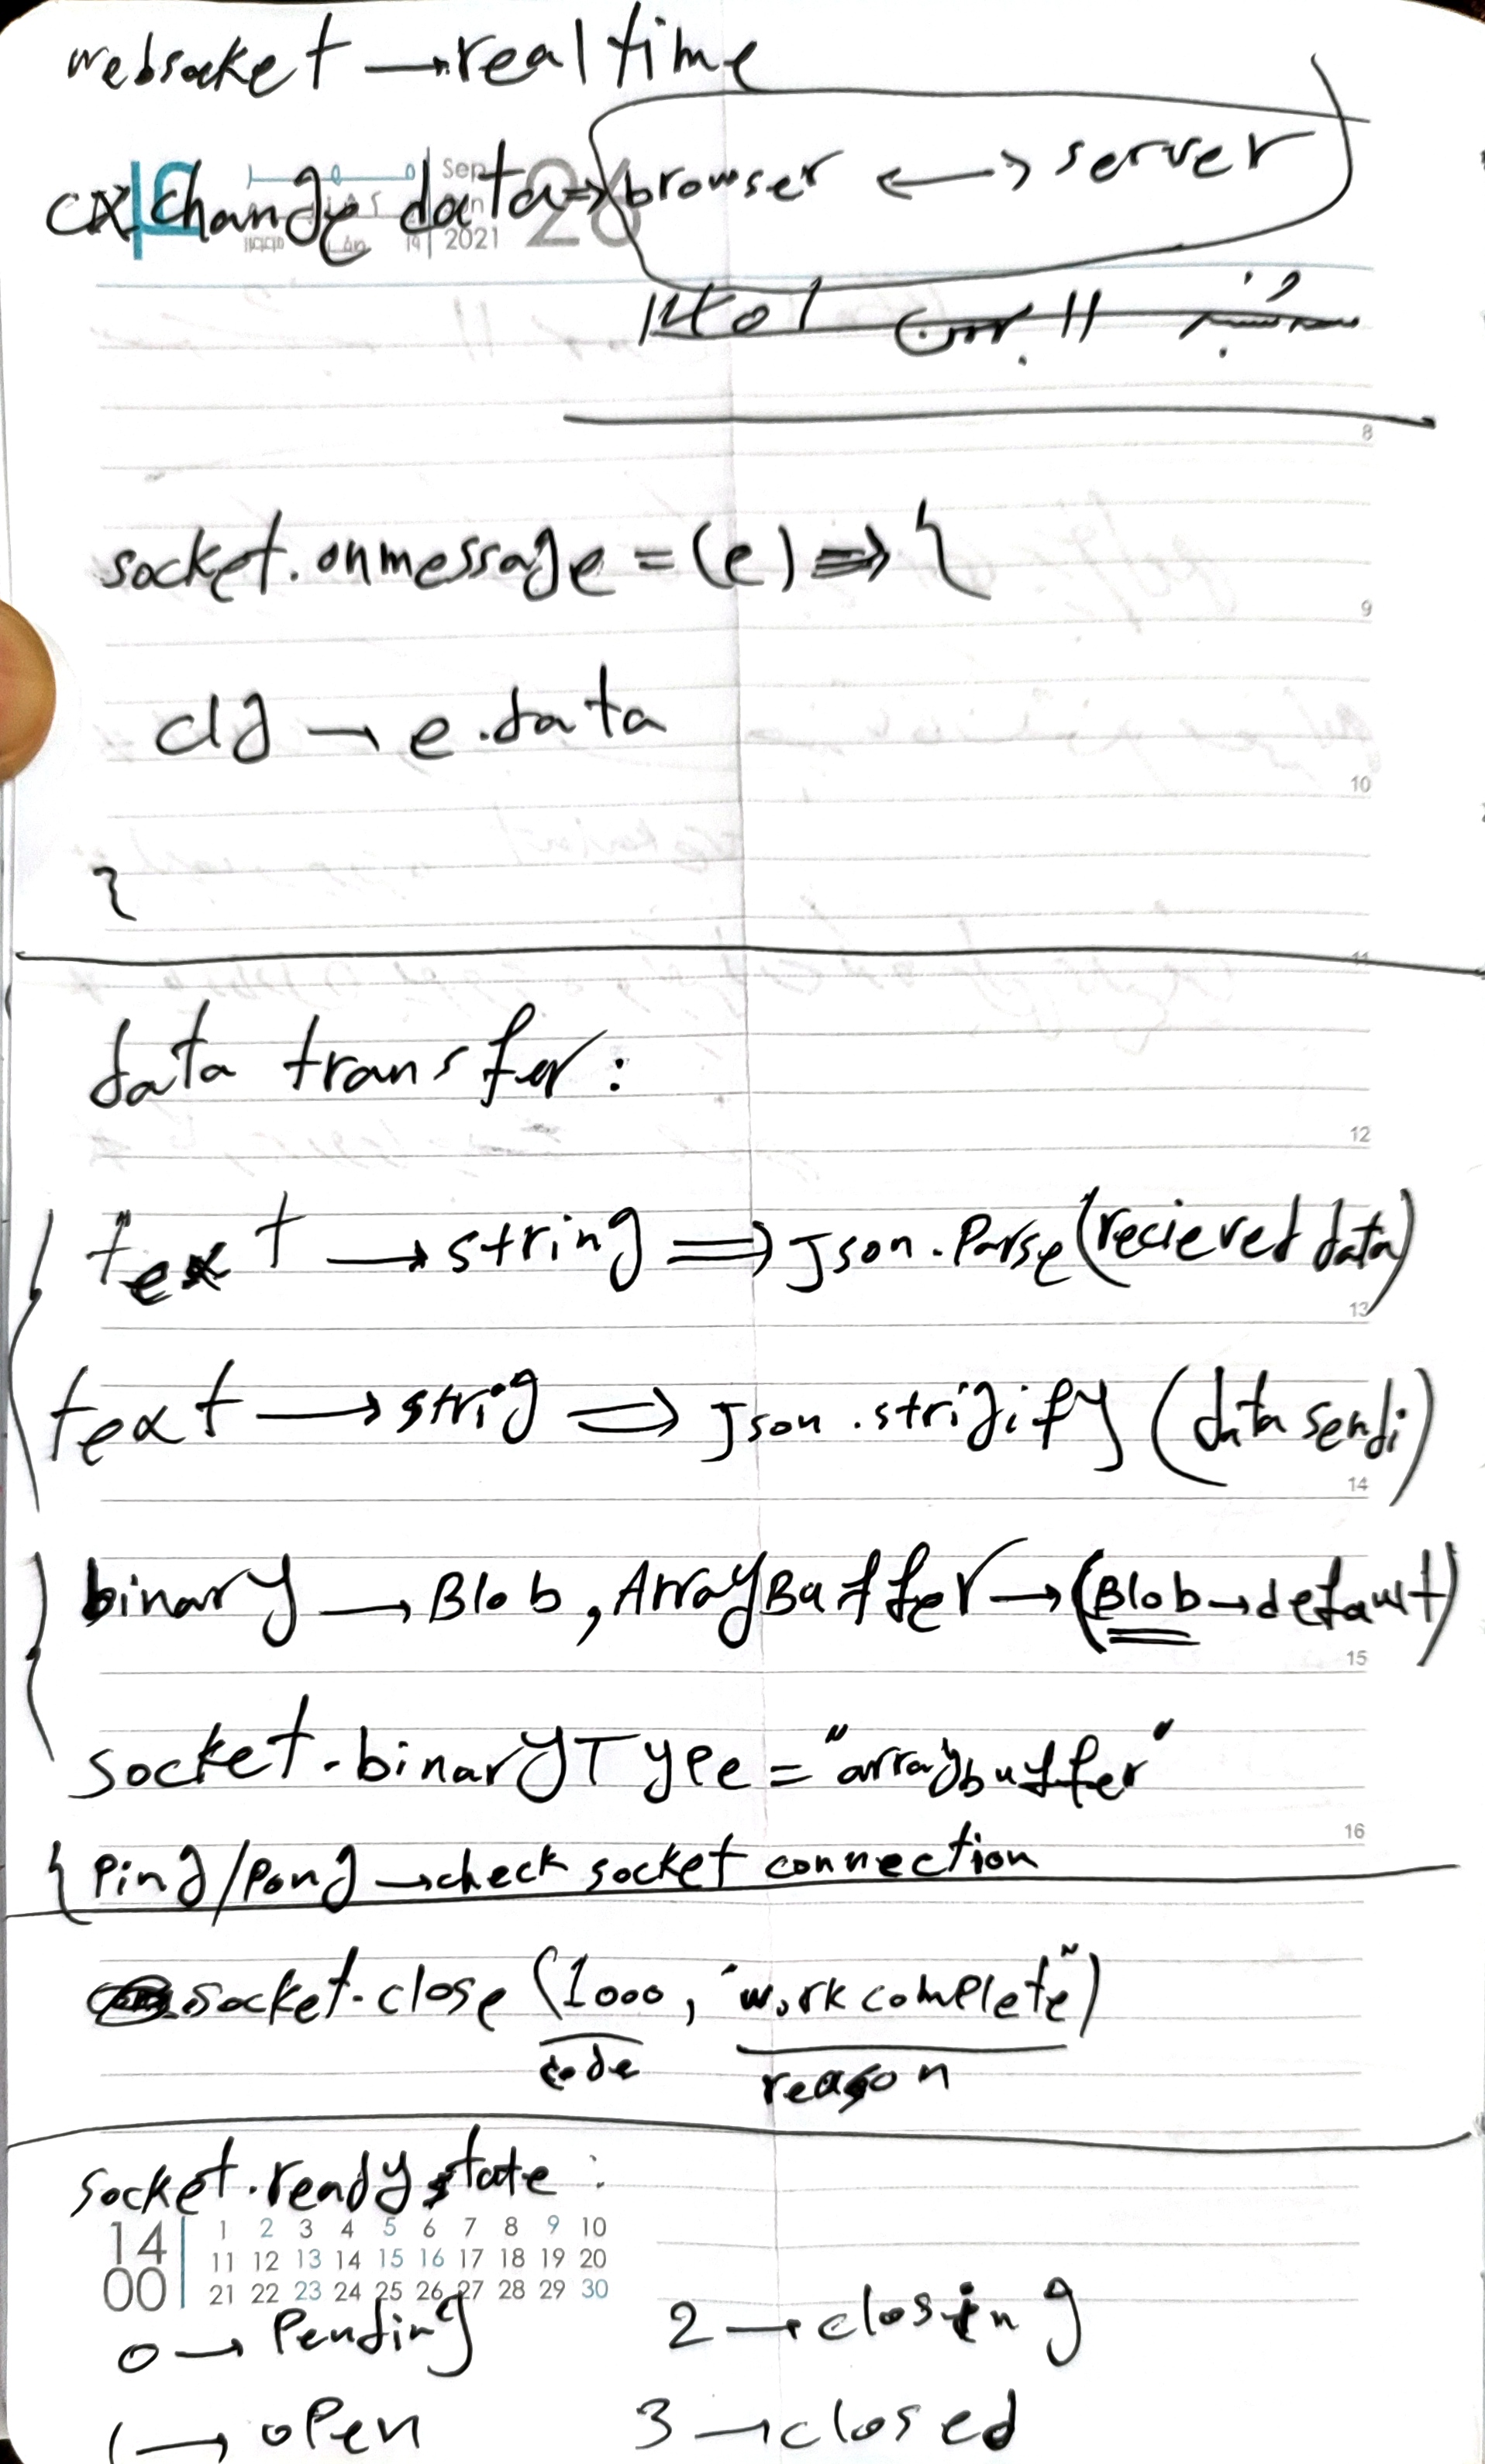 websocket → real time
exchange data => browser ↔ server
Sep
26
2021
8
socket.onmessage = (e) => {
9
clg → e.data
10
}
11
data transfer:
12
text → string => Json.Parse (recieved data)
13
text → strig => Json.strigify (data sendi)
14
binary → Blob, ArrayBuffer → (Blob → default)
15
socket.binaryType = "arraybuffer"
16
{ Ping/Pong → check socket connection
socket.close (1000, "work complete")
code reason
socket.ready state :
14 1 2 3 4 5 6 7 8 9 10
11 12 13 14 15 16 17 18 19 20
00 21 22 23 24 25 26 27 28 29 30
0 → Pending 2 → closing
1 → open 3 → closed